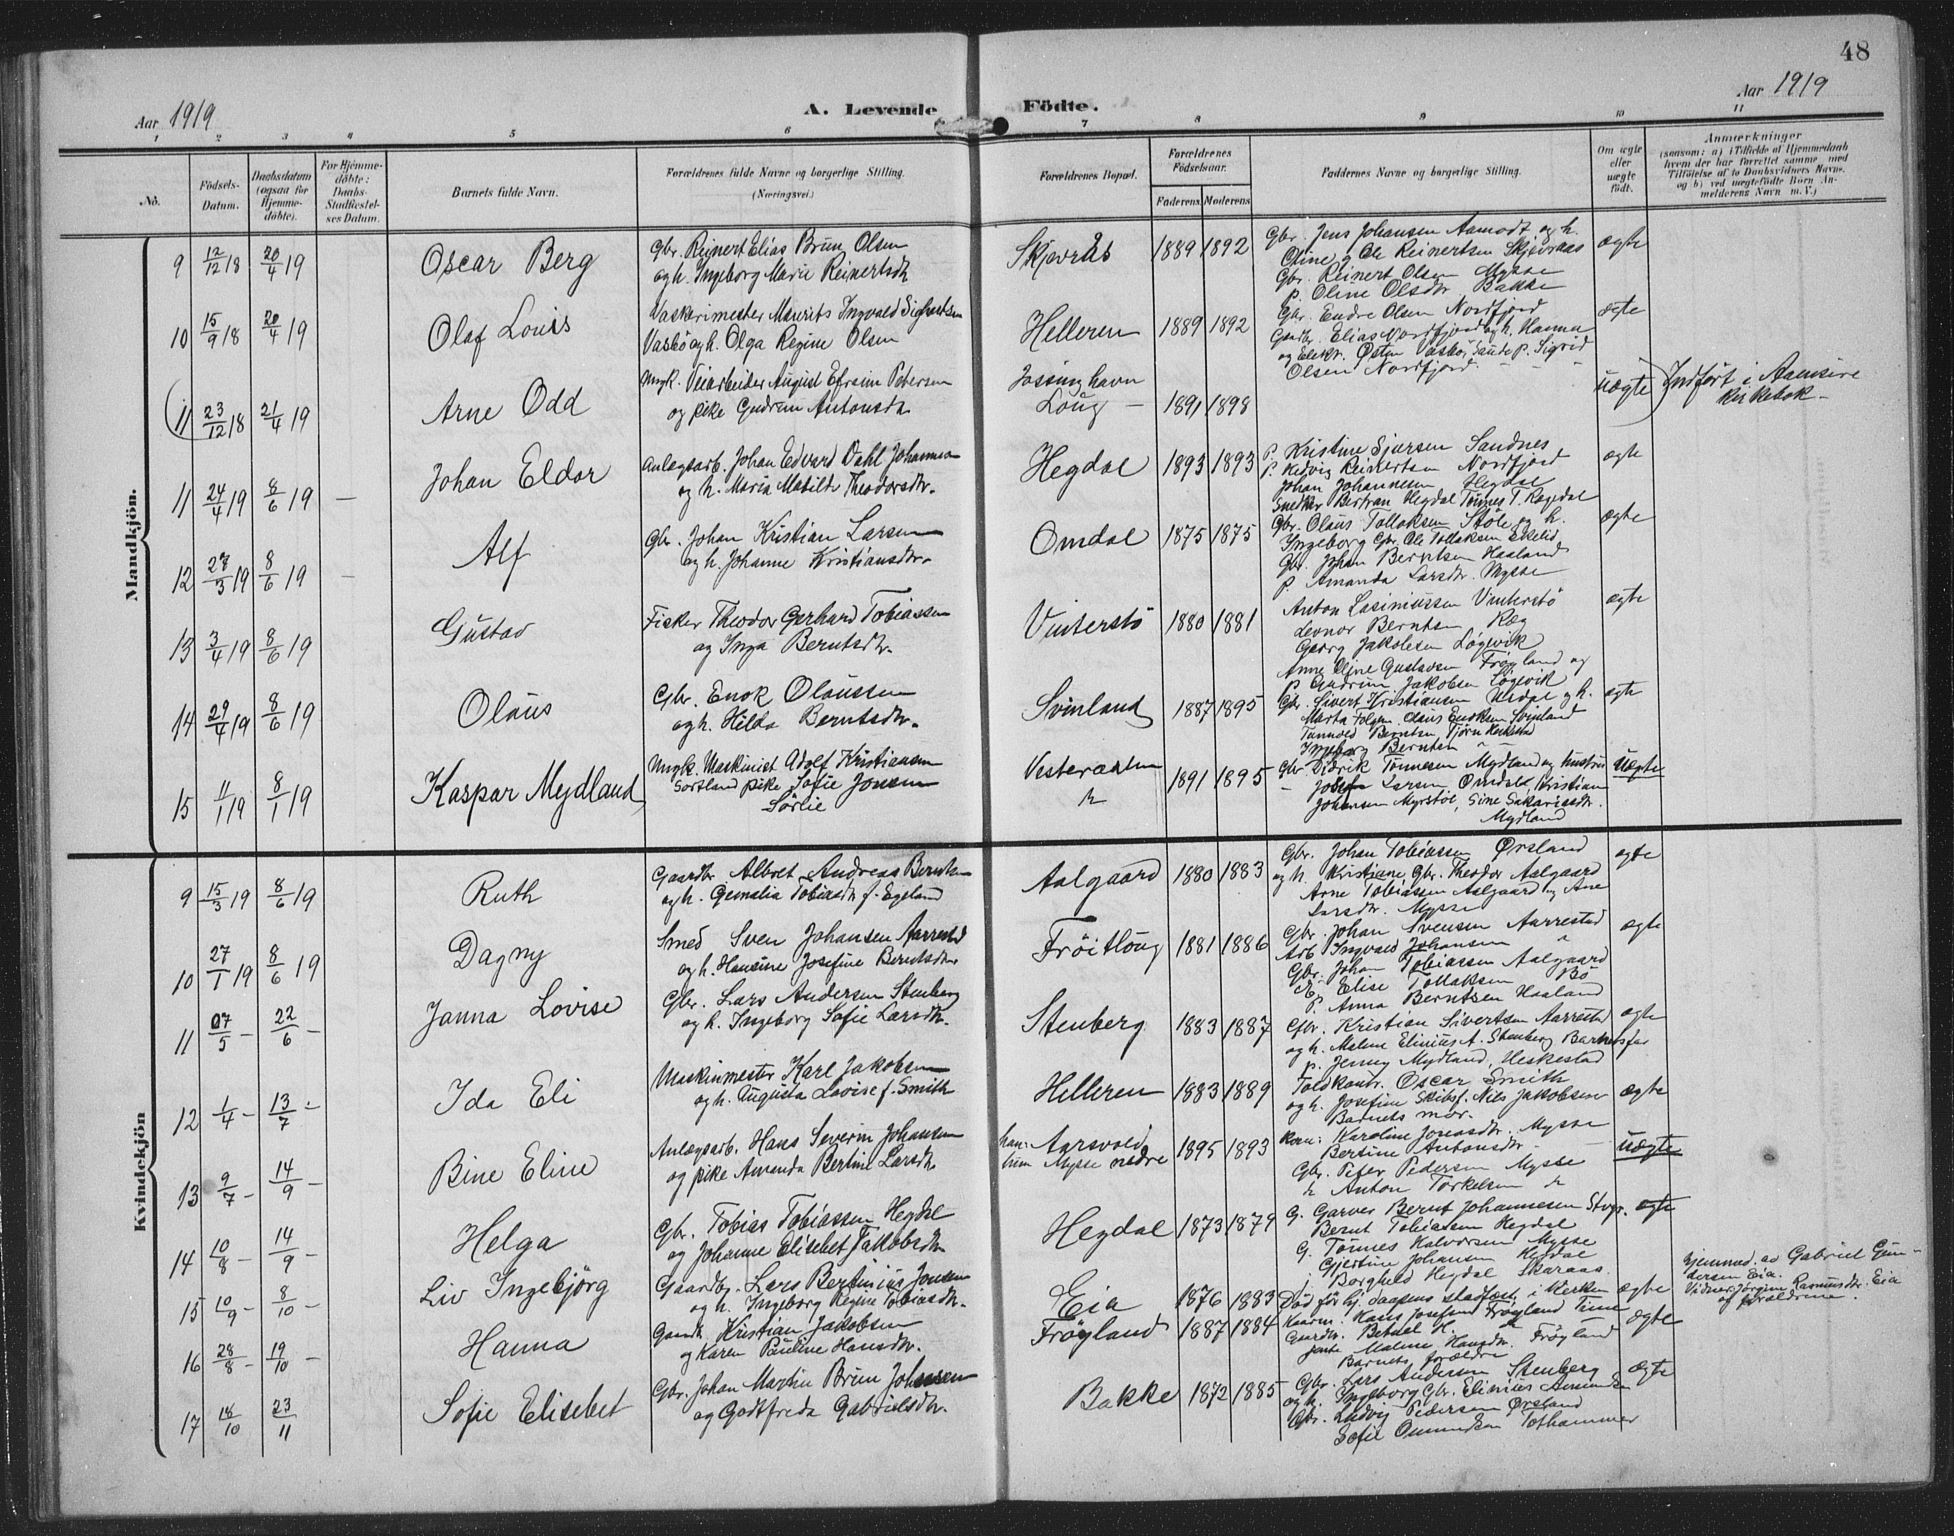 48
Aar 1919
A. Levende Födte.
Aar 1919
1 2 3 4 5 6 7 8 9 10 11
No.
Födsels-Datum.
Daabsdatum (ogsaa for Hjemmedöbte).
For Hjemmedöbte: Daabs-Stadfestelses Datum.
Barnets fulde Navn.
Forældrenes fulde Navne og borgerlige Stilling.
(Næringsvei.)
Forældrenes Bopæl.
Forældrenes Födselsaar.
Faderens. Moderens
Faddernes Navne og borgerlige Stilling.
Om ægte eller uægte født.
Anmærkninger
(saasom: a) i Tilfælde af Hjemmedaab
hvem der har forrettet samme med
Tilföielse af to Daabsvidners Navne.
og b) ved uægtefödte Börn An-
melderens Navn m. V.)
Mandkjön.
9 12/12 18 20/4 19 Oscar Berg
Gbr. Reinert Elias Brun Olsen
og h. Ingeborg Marie Reinertsdtr
Skjevrås 1889 1892
Gbr. Jens Johansen Aamodt og h.
Oline, Ole Reinertsen Skjevraas
Gbr. Reinert Olsen Mysse
p. Oline Olsdtr Bakke
ægte
10 15/9 18 20/4 19 Olaf Louis
Vaskerimester Maurits Ingvald Sigfredsen
Vasbö og h. Olga Regine Olsen
Helleren 1889 1892
Gbr. Endre Olsen Nordfjord
Gaardbr. Elias Nordfjord og h. Hanna
og Elektr. Østen Vasbø, Saude p. Sigrid
Olsen Nordfjord.
ægte
11 23/12 18 21/4 19 Arne Odd
Ungk. Veiarbeider August Efraim Petersen
og pike Gudrun Antonsdtr
Jössinghavn
Loug – 1891 1898
uægte
Indfört i Aamsire
Kirkebok –
11 24/4 19 8/6 19 – Johan Eldar
Anlægsarb. Johan Edvard Dahl Johannesen
og h. Maria Matilde Theodorsdtr.
Hegdal 1893 1893
P. Kristine Sjursen Sandnes
p. Hedvig Reinertsen Nordfjord
Johan Johannesen Hegdal
Snedker Bertran Hegdal Tönnes T. Rægedal
ægte
12 27/3 19 8/6 19 – Alf
Gbr. Johan Kristian Larsen
og h. Johanne Kristiansdtr.
Omdal 1875 1875
Gbr. Olaus Tollaksen Støle og h.
Ingeborg Gbr. Ole Tollaksen Eikelid
Gbr. Johan Berntsen Haaland
p. Amanda Larsdtr. Mysse
ægte
13 3/4 19 8/6 19 Gustav
Fisker Theodor Gerhard Tobiassen
og Inga Berntsdtr.
Vinterstö 1880 1881
Anton Lasiniussen Vinterstö
Leonor Berntsen Ræg
Georg Jakobsen Løgevik
Anne Oline Gustavsen Frøyland og
p Gudrun Jakobsen Løgevik
ægte
14 29/4 19 8/6 19 Olaus
Gbr. Enok Olaussen
og h. Hilda Berntsdtr.
Svinland 1887 1895
Gbr. Sivert Kristiansen Urdal og h.
Marta Olaus Enoksen Svinland
Berntsen
Ingeborg Berntsen
ægte
15 11/1 19 8/1 19 Kaspar Mydland
Ungk. Maskinist Adolf Kristiansen
Sortland pike Sofie Jonsen
Sørlie
Vesteraalen 1891 1895
Gbr. Didrik Tønnesen Mydland og hustru
Josef Larsen Omdal, Kristian
Johansen Myrstøl, Sine Sakariasdtr.
Mydland
uægte
Kvindekjön
9 15/3 19 8/6 19 Ruth
Gaardbr Albret Andreas Berntsen
og h. Gemalia Tobiasdtr f. Egeland
Aalgaard 1880 1883
Gbr. Johan Tobiassen Ørsland
og h. Kristiane, Gbr. Theodor Aalgaard
Arne Tobiassen Aalgaard og Ane
Larsdtr. Mysse
ægte
10 27/1 19 8/6 19 Dagny
Smed Sven Johansen Aarrestad
og h. Hansine Josefine Berntsdtr
Fröitloug 1881 1886
Gbr. Johan Svensen Aarrestad
Arb Ingvald Johansen "
Gbr. Johan Tobiassen Aalgaard
Elise Tollaksen Bö
p. Anna Berntsen Haaland
ægte
11 07/5 – 22/6 – Janna Lovise
Gbr. Lars Andersen Stenberg
og h. Ingeborg Sofie Larsdtr.
Stenberg 1883 1887
Gbr. Kristian Sivertsen Aarrestad
og h. Malene Elinius A. Stenberg Barnefar
p. Jenny Mydland, Heskestad
ægte
12 1/4 – 13/7 – Ida Eli
Maskinmester Karl Jakobsen
og h. Augusta Lovise f. Smith
Helleren 1883 1889
Toldkontr. Oscar Smith
og h. Josefine Skibsf. Nils Jakobsen
Barnets mor.
ægte
13 9/7 – 14/9 – Bine Eline
Anlægsarb. Hans Severin Johansen
og pike Amanda Bertine Larsdtr
han: Aarsvold
hun Mysse nedre 1895 1893
Kom: Karoline Jonasdtr. Mysse
Bertine Antonsdtr.
Gbr. Peter Pedersen Mysse
Anton Torkelsen
uægte
14 10/8 – 14/9 – Helga
Gbr. Tobias Tobiassen Hegdal
og Johanne Elisebet Jakobsdtr
Hegdal 1873 1879
G. Garver Bernt Johannesen
Bernt Tobiassen Hegdal
G. Tønnes Halvorsen Mysse
Gjertine Johansen Hegdal
Borghild Hegdal Skaraas.
ægte
15 10/9 – 8/10 – Liv Ingebjörg
Gaardbr. Lars Bertinius Jonsen
og h. Ingeborg Regine Tobiasdtr.
Eia 1876 1883
Död för hj. daapens stadfest. i kirken
ægte
Hjemmed. av Gabriel Gun-
dersen Eia.
Vidner: Jörgine Rasmusdtr. Eia
og forældrene.
16 28/8 – 19/10 – Hanna
Gaardb. Kristian Jakobsen
og Karen Pauline Hansdtr.
Fröyland 1887 1884
Kaarm. Hans Josefsen Frøyland Time
Gaardbr. Betuel H.
Jente Malene Hansdtr. Frøyland
Barnets forældre
ægte
17 18/10 23/11 Sofie Elisebet
Gbr. Johan Martin Brun Johansen
og Godtfreda Gabrielsdtr.
Bakke 1872 1885
Gbr. Lars Andersen Stenberg
og h. Ingeborg Gbr. Elinius
Gbr. Ludvig Pedersen Ørsland
Sofie Omundsen Tothammer
ægte